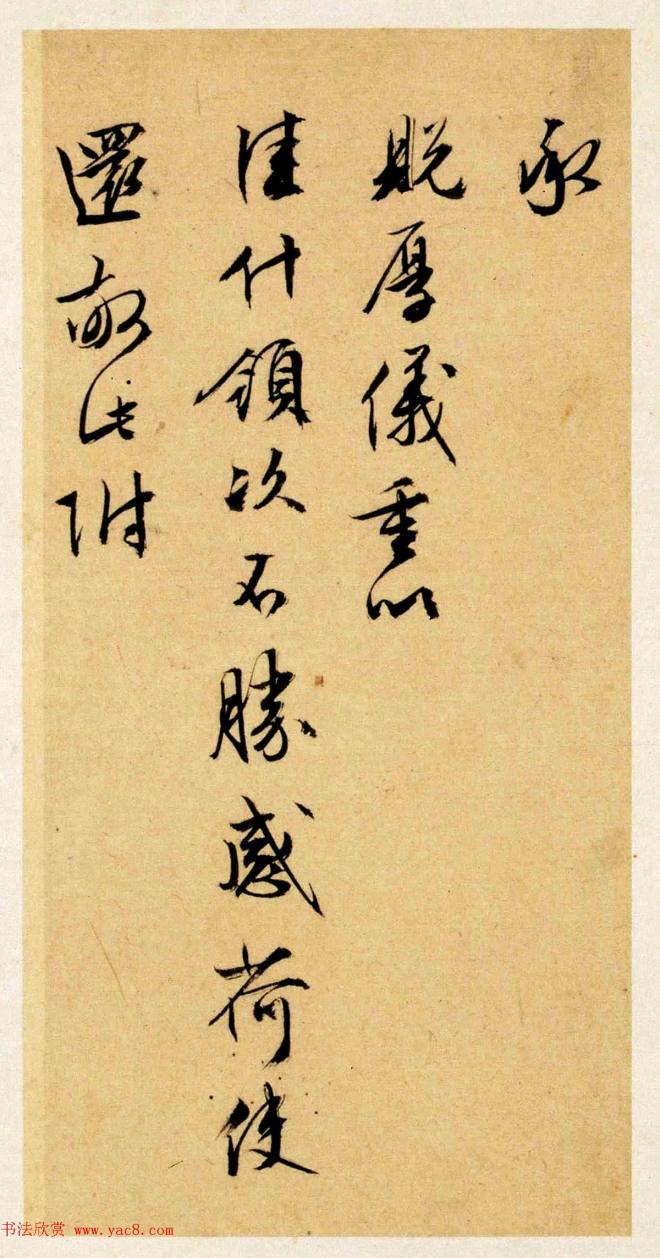 承
貺厚儀重以
佳什領次不勝感荷使
還敬此附
书法欣赏 www.yac8.com